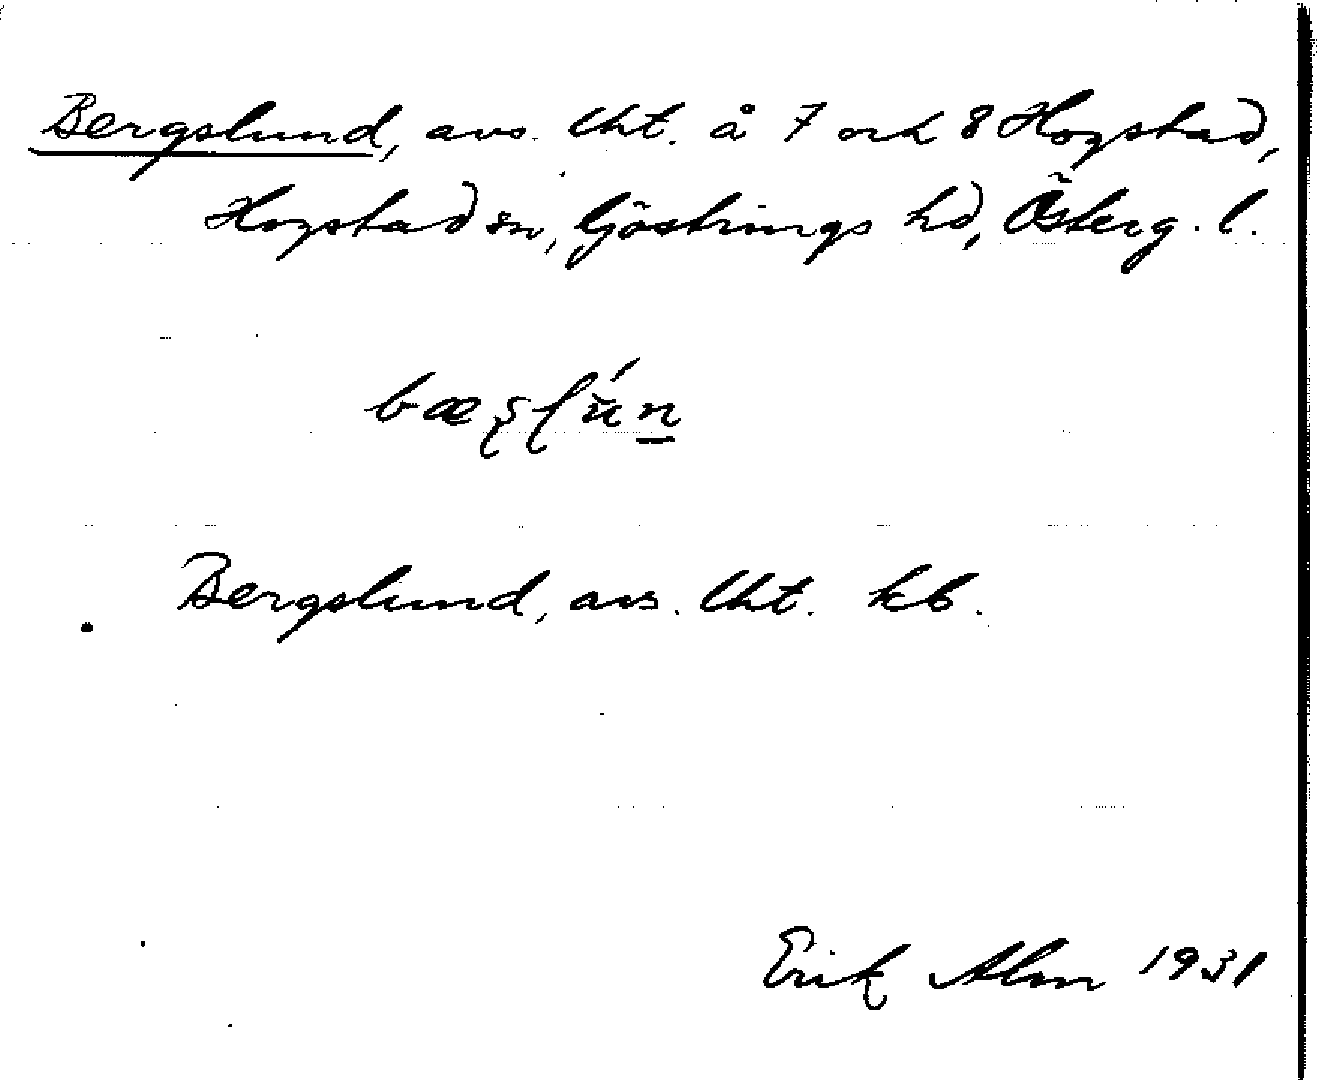 Bergslund, avs. lht. å 7 och 8 Hogstad,
Hogstad sn, Göstrings hd, Österg. l.
Bergslund, avs. lht. kb.
Erik Alm 1931